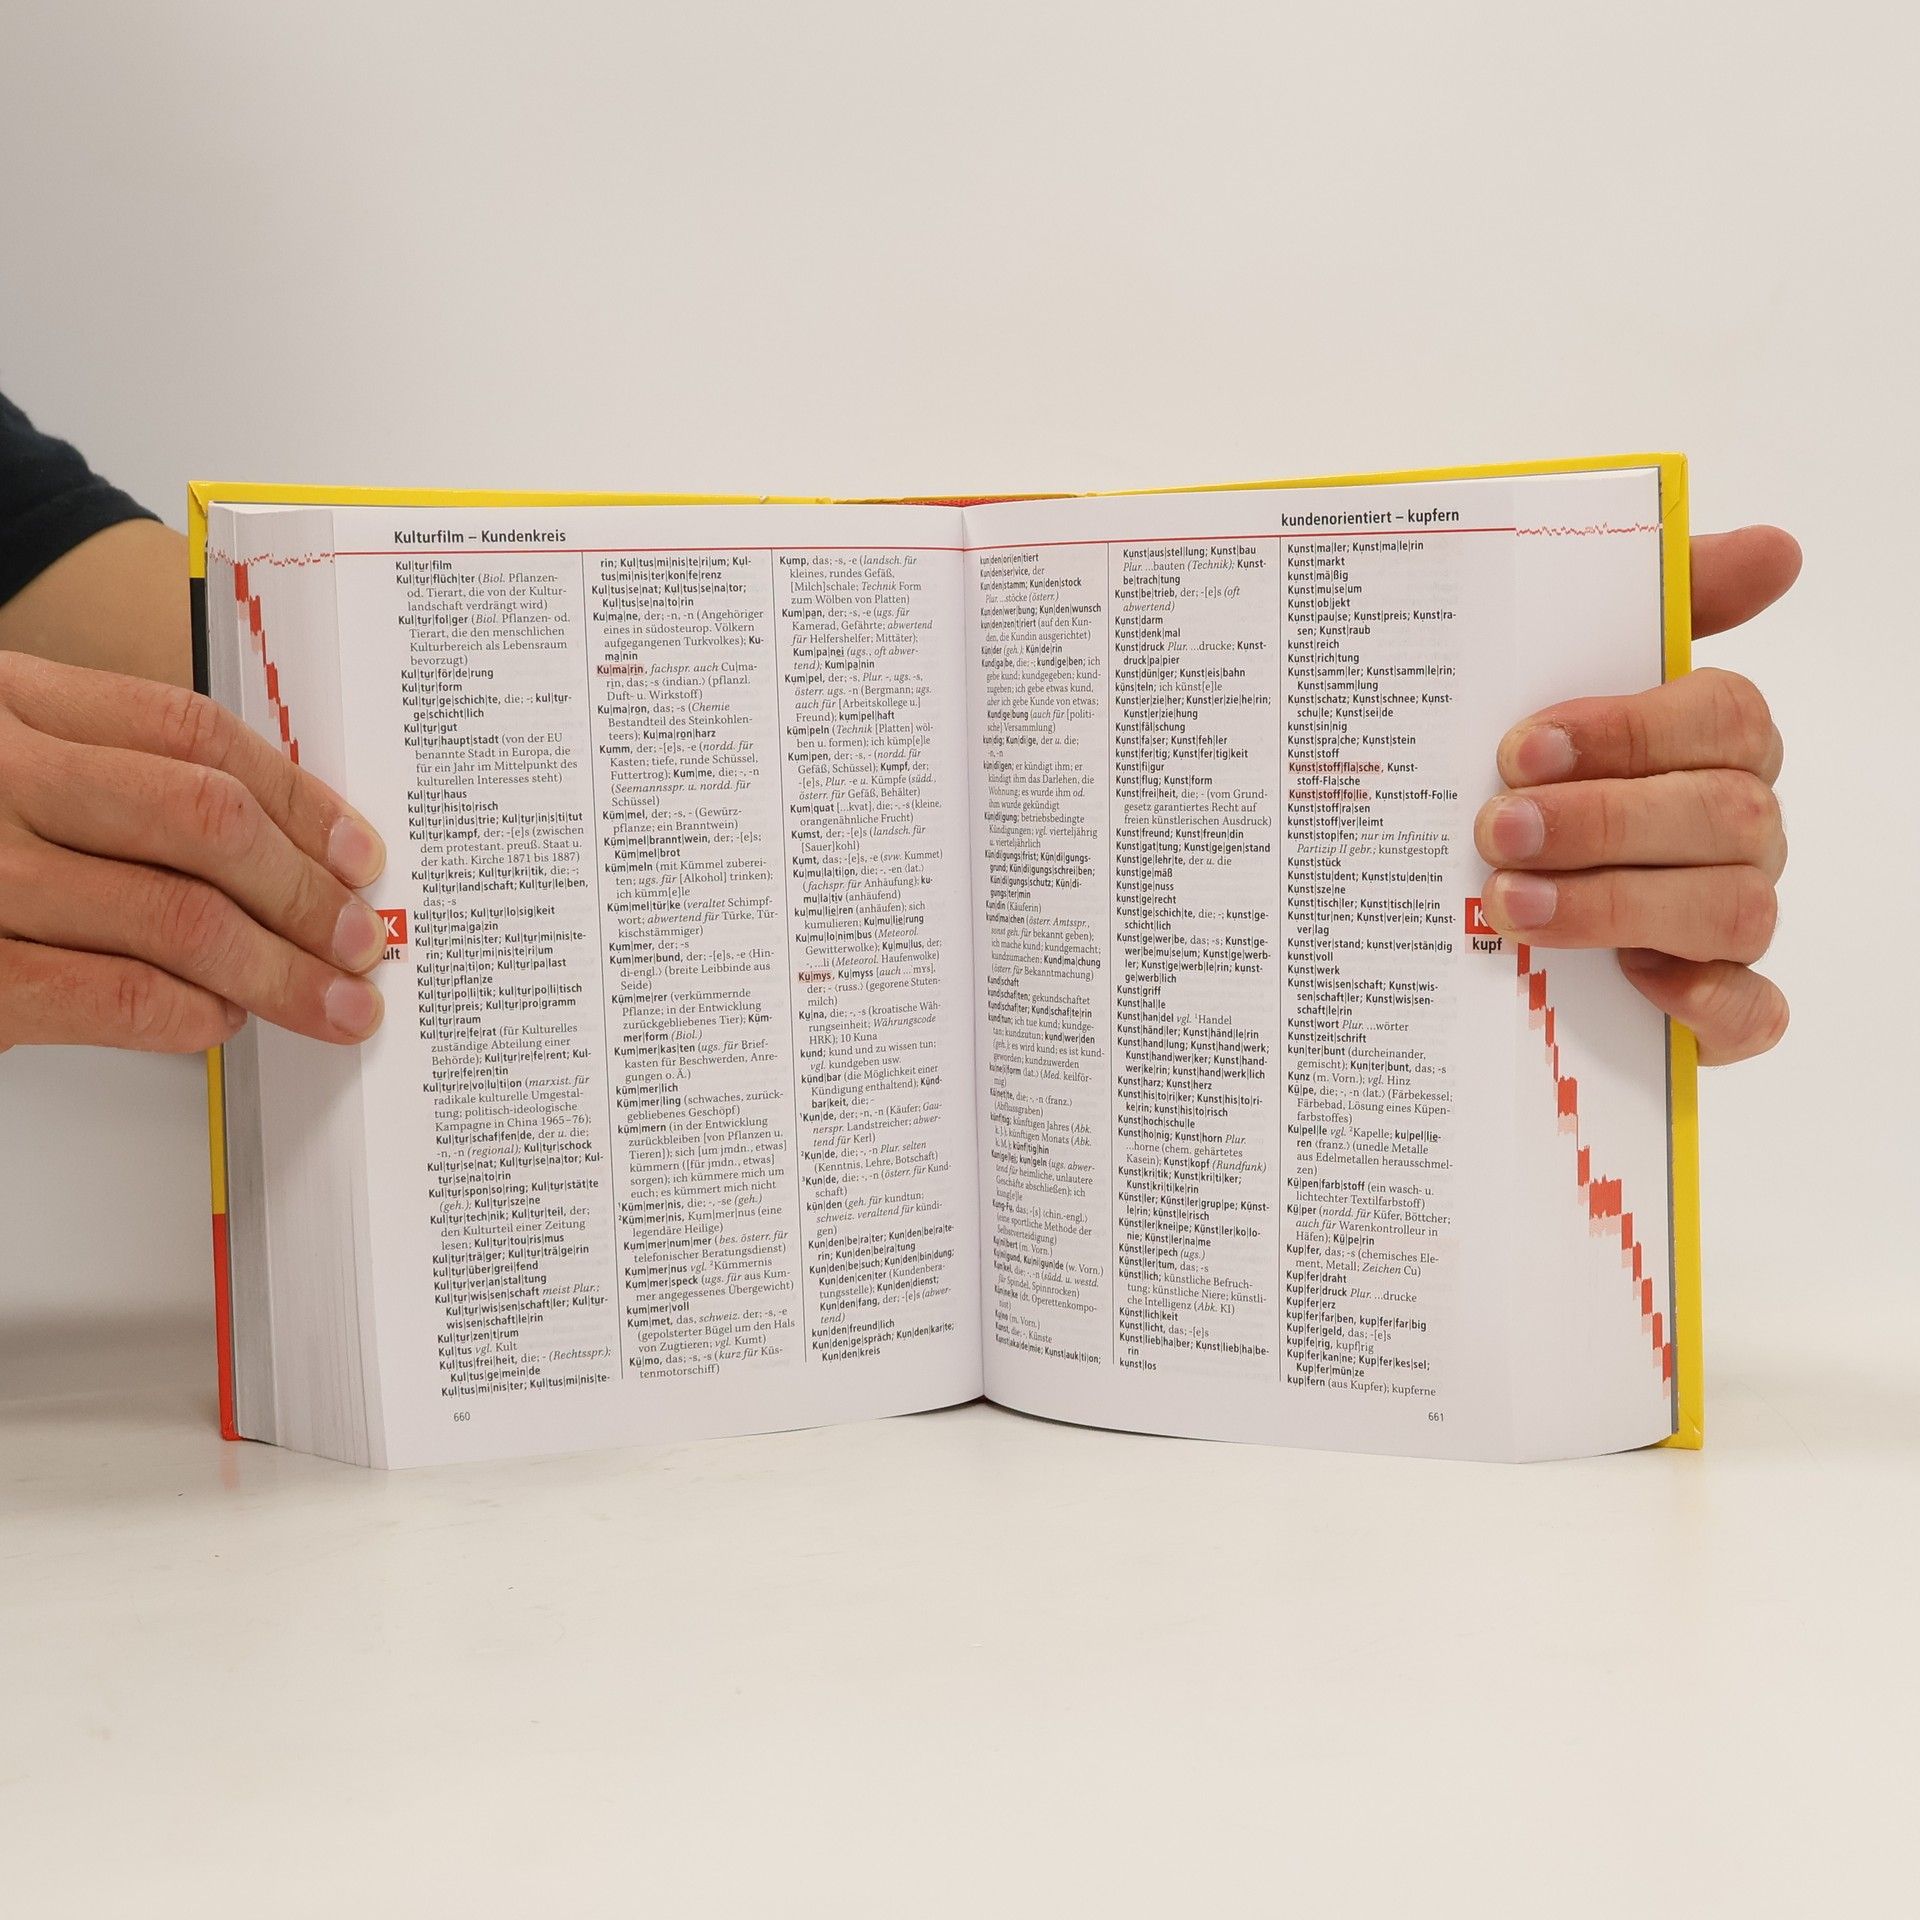 Kulturfilm – Kundenkreis
Kul|tur|film
Kul|tur|flüch|ter (Biol. Pflanzen-
od. Tierart, die von der Kultur-
landschaft verdrängt wird)
Kul|tur|fol|ger (Biol. Pflanzen- od.
Tierart, die den menschlichen
Kulturbereich als Lebensraum
bevorzugt)
Kul|tur|för|de|rung
Kul|tur|form
Kul|tur|ge|schich|te, die; -; kul|tur-
ge|schicht|lich
Kul|tur|gut
Kul|tur|haupt|stadt (von der EU
benannte Stadt in Europa, die
für ein Jahr im Mittelpunkt des
kulturellen Interesses steht)
Kul|tur|haus
kul|tur|his|to|risch
Kul|tur|in|dus|trie; Kul|tur|in|s|ti|tut
Kul|tur|kampf, der; -[e]s (zwischen
dem protestant. preuß. Staat u.
der kath. Kirche 1871 bis 1887)
Kul|tur|kreis; Kul|tur|kri|tik, die; -;
Kul|tur|land|schaft; Kul|tur|le|ben,
das; -s
kul|tur|los; Kul|tur|lo|sig|keit
Kul|tur|ma|ga|zin
Kul|tur|mi|nis|ter; Kul|tur|mi|nis|te-
rin; Kul|tur|mi|nis|te|ri|um
Kul|tur|na|ti|on; Kul|tur|pa|last
Kul|tur|pflan|ze
Kul|tur|po|li|tik; kul|tur|po|li|tisch
Kul|tur|preis; Kul|tur|pro|gramm
Kul|tur|raum
Kul|tur|re|fe|rat (für Kulturelles
zuständige Abteilung einer
Behörde); Kul|tur|re|fe|rent; Kul-
tur|re|fe|ren|tin
Kul|tur|re|vo|lu|ti|on (marxist. für
radikale kulturelle Umgestal-
tung; politisch-ideologische
Kampagne in China 1965–76);
Kul|tur|schaf|fen|de, der u. die;
-n, -n (regional); Kul|tur|schock
Kul|tur|se|nat; Kul|tur|se|na|tor; Kul-
tur|se|na|to|rin
Kul|tur|spon|so|ring; Kul|tur|stät|te
(geh.); Kul|tur|sze|ne
Kul|tur|tech|nik; Kul|tur|teil, der;
den Kulturteil einer Zeitung
lesen; Kul|tur|tou|ris|mus
Kul|tur|trä|ger; Kul|tur|trä|ge|rin
kul|tur|über|grei|fend
Kul|tur|ver|an|stal|tung
Kul|tur|wis|sen|schaft meist Plur.;
Kul|tur|wis|sen|schaft|ler; Kul|tur-
wis|sen|schaft|le|rin
Kul|tur|zen|t|rum
Kul|tus vgl. Kult
Kul|tus|frei|heit, die; - (Rechtsspr.);
Kul|tus|ge|mein|de
Kul|tus|mi|nis|ter; Kul|tus|mi|nis|te-
rin; Kul|tus|mi|nis|te|ri|um; Kul-
tus|mi|nis|ter|kon|fe|renz
Kul|tus|se|nat; Kul|tus|se|na|tor;
Kul|tus|se|na|to|rin
Ku|ma|ne, der; -n, -n (Angehöriger
eines in südosteurop. Völkern
aufgegangenen Turkvolkes); Ku-
ma|nin
Ku|ma|rin, fachspr. auch Cu|ma-
rin, das; -s ⟨indian.⟩ (pflanzl.
Duft- u. Wirkstoff)
Ku|ma|ron, das; -s (Chemie
Bestandteil des Steinkohlen-
teers); Ku|ma|ron|harz
Kumm, der; -[e]s, -e (nordd. für
Kasten; tiefe, runde Schüssel,
Futtertrog); Kum|me, die; -, -n
(Seemannsspr. u. nordd. für
Schüssel)
Küm|mel, der; -s, - (Gewürz-
pflanze; ein Branntwein)
Küm|mel|brannt|wein, der; -[e]s;
Küm|mel|brot
küm|meln (mit Kümmel zuberei-
ten; ugs. für [Alkohol] trinken);
ich kümm[e]le
Küm|mel|tür|ke (veraltet Schimpf-
wort; abwertend für Türke, Tür-
kischstämmiger)
Kum|mer, der; -s
Kum|mer|bund, der; -[e]s, -e ⟨Hin-
di-engl.⟩ (breite Leibbinde aus
Seide)
Küm|me|rer (verkümmernde
Pflanze; in der Entwicklung
zurückgebliebenes Tier); Küm-
mer|form (Biol.)
Kum|mer|kas|ten (ugs. für Brief-
kasten für Beschwerden, Anre-
gungen o. Ä.)
küm|mer|lich
Küm|mer|ling (schwaches, zurück-
gebliebenes Geschöpf)
küm|mern (in der Entwicklung
zurückbleiben [von Pflanzen u.
Tieren]); sich [um jmdn., etwas]
kümmern ([für jmdn., etwas]
sorgen); ich kümmere mich um
euch; es kümmert mich nicht
¹Küm|mer|nis, die; -, -se (geh.)
²Küm|mer|nis, Kum|mer|nus (eine
legendäre Heilige)
Kum|mer|num|mer (bes. österr. für
telefonischer Beratungsdienst)
Kum|mer|nus vgl. ²Kümmernis
Kum|mer|speck (ugs. für aus Kum-
mer angegessenes Übergewicht)
kum|mer|voll
Kum|met, das, schweiz. der; -s, -e
(gepolsterter Bügel um den Hals
von Zugtieren; vgl. Kumt)
Kü|mo, das; -s, -s (kurz für Küs-
tenmotorschiff)
Kump, das; -s, -e (landsch. für
kleines, rundes Gefäß,
[Milch]schale; Technik Form
zum Wölben von Platten)
Kum|pan, der; -s, -e (ugs. für
Kamerad, Gefährte; abwertend
für Helfershelfer; Mittäter);
Kum|pa|nei (ugs., oft abwer-
tend); Kum|pa|nin
Kum|pel, der; -s, Plur. -, ugs. -s,
österr. ugs. -n (Bergmann; ugs.
auch für [Arbeitskollege u.]
Freund); kum|pel|haft
küm|peln (Technik [Platten] wöl-
ben u. formen); ich kümp[e]le
Kum|pen, der; -s, - (nordd. für
Gefäß, Schüssel); Kumpf, der;
-[e]s, Plur. -e u. Kümpfe (südd.,
österr. für Gefäß, Behälter)
Kum|quat [...kvat], die; -, -s (kleine,
orangenähnliche Frucht)
Kumst, der; -[e]s (landsch. für
[Sauer]kohl)
Kumt, das; -[e]s, -e (svw. Kummet)
Ku|mu|la|ti|on, die; -, -en ⟨lat.⟩
(fachspr. für Anhäufung); ku-
mu|la|tiv (anhäufend)
ku|mu|lie|ren (anhäufen); sich
kumulieren; Ku|mu|lie|rung
Ku|mu|lo|nim|bus (Meteorol.
Gewitterwolke); Ku|mu|lus, der;
-, ...li (Meteorol. Haufenwolke)
Ku|mys, Ku|myss [auch ...mys],
der; - ⟨russ.⟩ (gegorene Stuten-
milch)
Ku|na, die; -, -s (kroatische Wäh-
rungseinheit; Währungscode
HRK); 10 Kuna
kund; kund und zu wissen tun;
vgl. kundgeben usw.
künd|bar (die Möglichkeit einer
Kündigung enthaltend); Künd-
bar|keit, die; -
¹Kun|de, der; -n, -n (Käufer; Gau-
nerspr. Landstreicher; abwer-
tend für Kerl)
²Kun|de, die; -, -n Plur. selten
(Kenntnis, Lehre, Botschaft)
³Kun|de, die; -, -n (österr. für Kund-
schaft)
kün|den (geh. für kundtun;
schweiz. veraltend für kündi-
gen)
Kun|den|be|ra|ter; Kun|den|be|ra|te-
rin; Kun|den|be|ra|tung
Kun|den|be|such; Kun|den|bin|dung;
Kun|den|cen|ter (Kundenbera-
tungsstelle); Kun|den|dienst;
Kun|den|fang, der; -[e]s (abwer-
tend)
kun|den|freund|lich
Kun|den|ge|spräch; Kun|den|kar|te;
Kun|den|kreis
K
ult
660
kundenorientiert – kupfern
kun|den|ori|en|tiert
Kun|den|ser|vice, der
Kun|den|stamm; Kun|den|stock
Plur. ...stöcke (österr.)
Kun|den|wer|bung; Kun|den|wunsch
kun|den|zen|t|riert (auf den Kun-
den, die Kundin ausgerichtet)
Kün|der (geh.); Kün|de|rin
Kund|ga|be, die; -; kund|ge|ben; ich
gebe kund; kundgegeben; kund-
zugeben; ich gebe etwas kund,
aber ich gebe Kunde von etwas;
Kund|ge|bung (auch für [politi-
sche] Versammlung)
kun|dig; Kun|di|ge, der u. die;
-n, -n
kün|di|gen; er kündigt ihm; er
kündigt ihm das Darlehen, die
Wohnung; es wurde ihm od.
ihm wurde gekündigt
Kün|di|gung; betriebsbedingte
Kündigungen; vgl. vierteljährig
u. vierteljährlich
Kün|di|gungs|frist; Kün|di|gungs-
grund; Kün|di|gungs|schrei|ben;
Kün|di|gungs|schutz; Kün|di-
gungs|ter|min
Kun|din (Käuferin)
kund|ma|chen (österr. Amtsspr.,
sonst geh. für bekannt geben);
ich mache kund; kundgemacht;
kundzumachen; Kund|ma|chung
(österr. für Bekanntmachung)
Kund|schaft
kund|schaf|ten; gekundschaftet
Kund|schaf|ter; Kund|schaf|te|rin
kund|tun; ich tue kund; kundge-
tan; kundzutun; kund|wer|den
(geh.); es wird kund; es ist kund-
geworden; kundzuwerden
ku|ne|i|form ⟨lat.⟩ (Med. keilför-
mig)
Kü|net|te, die; -, -n ⟨franz.⟩
(Abflussgraben)
künf|tig; künftigen Jahres (Abk.
k. J.); künftigen Monats (Abk.
k. M.); künf|tig|hin
Kun|ge|lei; kun|geln (ugs. abwer-
tend für heimliche, unlautere
Geschäfte abschließen); ich
kung[e]le
Kung-Fu, das; -[s] ⟨chin.-engl.⟩
(eine sportliche Methode der
Selbstverteidigung)
Ku|ni|bert (m. Vorn.)
Ku|ni|gund, Ku|ni|gun|de (w. Vorn.)
Kun|kel, die; -, -n (südd. u. westd.
für Spindel, Spinnrocken)
Kün|ne|ke (dt. Operettenkompo-
nist)
Ku|no (m. Vorn.)
Kunst, die; -, Künste
Kunst|aka|de|mie; Kunst|auk|ti|on;
Kunst|aus|stel|lung; Kunst|bau
Plur. ...bauten (Technik); Kunst-
be|trach|tung
Kunst|be|trieb, der; -[e]s (oft
abwertend)
Kunst|darm
Kunst|denk|mal
Kunst|druck Plur. ...drucke; Kunst-
druck|pa|pier
Kunst|dün|ger; Kunst|eis|bahn
küns|teln; ich künst[e]le
Kunst|er|zie|her; Kunst|er|zie|he|rin;
Kunst|er|zie|hung
Kunst|fäl|schung
Kunst|fa|ser; Kunst|feh|ler
kunst|fer|tig; Kunst|fer|tig|keit
Kunst|fi|gur
Kunst|flug; Kunst|form
Kunst|frei|heit, die; - (vom Grund-
gesetz garantiertes Recht auf
freien künstlerischen Ausdruck)
Kunst|freund; Kunst|freun|din
Kunst|gat|tung; Kunst|ge|gen|stand
Kunst|ge|lehr|te, der u. die
kunst|ge|mäß
Kunst|ge|nuss
kunst|ge|recht
Kunst|ge|schich|te, die; -; kunst|ge-
schicht|lich
Kunst|ge|wer|be, das; -s; Kunst|ge-
wer|be|mu|se|um; Kunst|ge|werb-
ler; Kunst|ge|werb|le|rin; kunst-
ge|werb|lich
Kunst|griff
Kunst|hal|le
Kunst|han|del vgl. ¹Handel
Kunst|händ|ler; Kunst|händ|le|rin
Kunst|hand|lung; Kunst|hand|werk;
Kunst|hand|wer|ker; Kunst|hand-
wer|ke|rin; kunst|hand|werk|lich
Kunst|harz; Kunst|herz
Kunst|his|to|ri|ker; Kunst|his|to|ri-
ke|rin; kunst|his|to|risch
Kunst|hoch|schu|le
Kunst|ho|nig; Kunst|horn Plur.
...horne (chem. gehärtetes
Kasein); Kunst|kopf (Rundfunk)
Kunst|kri|tik; Kunst|kri|ti|ker;
Kunst|kri|ti|ke|rin
Künst|ler; Künst|ler|grup|pe; Künst-
le|rin; künst|le|risch
Künst|ler|knei|pe; Künst|ler|ko|lo-
nie; Künst|ler|na|me
Künst|ler|pech (ugs.)
Künst|ler|tum, das; -s
künst|lich; künstliche Befruch-
tung; künstliche Niere; künstli-
che Intelligenz (Abk. KI)
Künst|lich|keit
Kunst|licht, das; -[e]s
Kunst|lieb|ha|ber; Kunst|lieb|ha|be-
rin
kunst|los
Kunst|ma|ler; Kunst|ma|le|rin
Kunst|markt
kunst|mä|ßig
Kunst|mu|se|um
Kunst|ob|jekt
Kunst|pau|se; Kunst|preis; Kunst|ra-
sen; Kunst|raub
kunst|reich
Kunst|rich|tung
Kunst|samm|ler; Kunst|samm|le|rin;
Kunst|samm|lung
Kunst|schatz; Kunst|schnee; Kunst-
schu|le; Kunst|sei|de
kunst|sin|nig
Kunst|spra|che; Kunst|stein
Kunst|stoff
Kunst|stoff|fla|sche, Kunst-
stoff-Fla|sche
Kunst|stoff|fo|lie, Kunst|stoff-Fo|lie
Kunst|stoff|ra|sen
kunst|stoff|ver|leimt
kunst|stop|fen; nur im Infinitiv u.
Partizip II gebr.; kunstgestopft
Kunst|stück
Kunst|stu|dent; Kunst|stu|den|tin
Kunst|sze|ne
Kunst|tisch|ler; Kunst|tisch|le|rin
Kunst|tur|nen; Kunst|ver|ein; Kunst-
ver|lag
Kunst|ver|stand; kunst|ver|stän|dig
kunst|voll
Kunst|werk
Kunst|wis|sen|schaft; Kunst|wis-
sen|schaft|ler; Kunst|wis|sen-
schaft|le|rin
Kunst|wort Plur. ...wörter
Kunst|zeit|schrift
kun|ter|bunt (durcheinander,
gemischt); Kun|ter|bunt, das; -s
Kunz (m. Vorn.); vgl. Hinz
Kü|pe, die; -, -n ⟨lat.⟩ (Färbekessel;
Färbebad, Lösung eines Küpen-
farbstoffes)
Ku|pel|le vgl. ²Kapelle; ku|pel|lie-
ren ⟨franz.⟩ (unedle Metalle
aus Edelmetallen herausschmel-
zen)
Kü|pen|farb|stoff (ein wasch- u.
lichtechter Textilfarbstoff)
Kü|per (nordd. für Küfer, Böttcher;
auch für Warenkontrolleur in
Häfen); Kü|pe|rin
Kup|fer, das; -s (chemisches Ele-
ment, Metall; Zeichen Cu)
Kup|fer|draht
Kup|fer|druck Plur. ...drucke
Kup|fer|erz
kup|fer|far|ben, kup|fer|far|big
Kup|fer|geld, das; -[e]s
kup|fe|rig, kupf|rig
Kup|fer|kan|ne; Kup|fer|kes|sel;
Kup|fer|mün|ze
kup|fern (aus Kupfer); kupferne
K
kupf
661